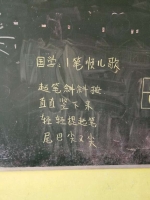 国学小笔悦儿歌
起笔斜斜按
直直竖下来
轻轻提起笔
尾巴尖又尖